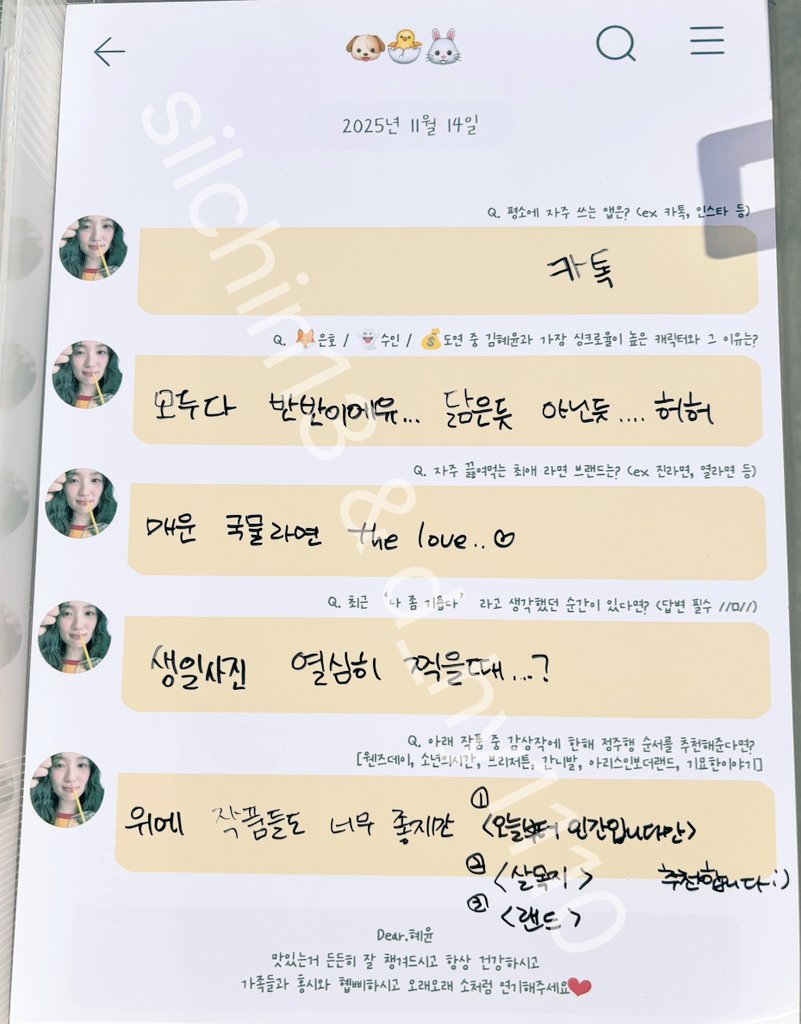 2025년 11월 14일
Q. 평소에 자주 쓰는 앱은? (ex 카톡, 인스타 등)
카톡
Q. 🦊은호 / 👻수인 / 💰도연 중 김혜윤과 가장 싱크로율이 높은 캐릭터와 그 이유는?
모두다 반반이에유... 닮은듯 아닌듯.... 허허
Q. 자주 끓여먹는 최애 라면 브랜드는? (ex 진라면, 열라면 등)
매운 국물라면 the love..♡
Q. 최근 '나 좀 기욥다' 라고 생각했던 순간이 있다면? (답변 필수 //ㅁ//)
생일사진 열심히 찍을때...?
Q. 아래 작품 중 감상작에 한해 정주행 순서를 추천해준다면?
[웬즈데이, 소년의시간, 브리저튼, 간니발, 아리스인보더랜드, 기묘한이야기]
위에 작품들도 너무 좋지만 ① <오늘부터 인간입니다만>
② <살목지> 추천합니다:)
③ <랜드>
Dear.혜윤
맛있는거 든든히 잘 챙겨드시고 항상 건강하시고
가족들과 홍시와 햅삐하시고 오래오래 소처럼 연기해주세요❤️
silchin13 & d_hy1110